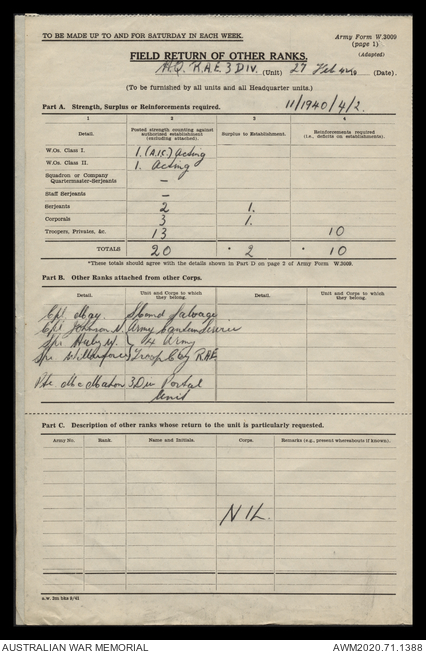 TO BE MADE UP TO AND FOR SATURDAY IN EACH WEEK.
Army Form W.3009
(page 1)
(Adapted)
FIELD RETURN OF OTHER RANKS.
H.Q. R.A.E. 3 DIV. (Unit) 27 Feb (Date).
(To be furnished by all units and all Headquarter units.)
11/1940/4/2.
Part A. Strength, Surplus or Reinforcements required.
1 2 3 4
Detail. Posted strength counting against authorized establishment (excluding attached). Surplus to Establishment. Reinforcements required (i.e., deficits on establishments).
W.Os. Class I. 1. (A.I.C.) Acting
W.Os. Class II. 1. Acting
Squadron or Company Quartermaster-Serjeants —
Staff Serjeants —
Serjeants 2 1.
Corporals 3 1.
Troopers, Privates, &c. 13 10
TOTALS 20 * 2 * 10
*These totals should agree with the details shown in Part D on page 2 of Army Form W.3009.
Part B. Other Ranks attached from other Corps.
Detail. Unit and Corps to which they belong. Detail. Unit and Corps to which they belong.
Cpl May Salvage
Cpl Johnson N. Army Canteen Service
Spr Huby W. } 4 Army
Spr } Troop Coy RAE
Pte McMahon 3 Div Postal
Unit
Part C. Description of other ranks whose return to the unit is particularly requested.
Army No. Rank. Name and Initials. Corps. Remarks (e.g., present whereabouts if known).
NIL
AUSTRALIAN WAR MEMORIAL AWM2020.71.1388